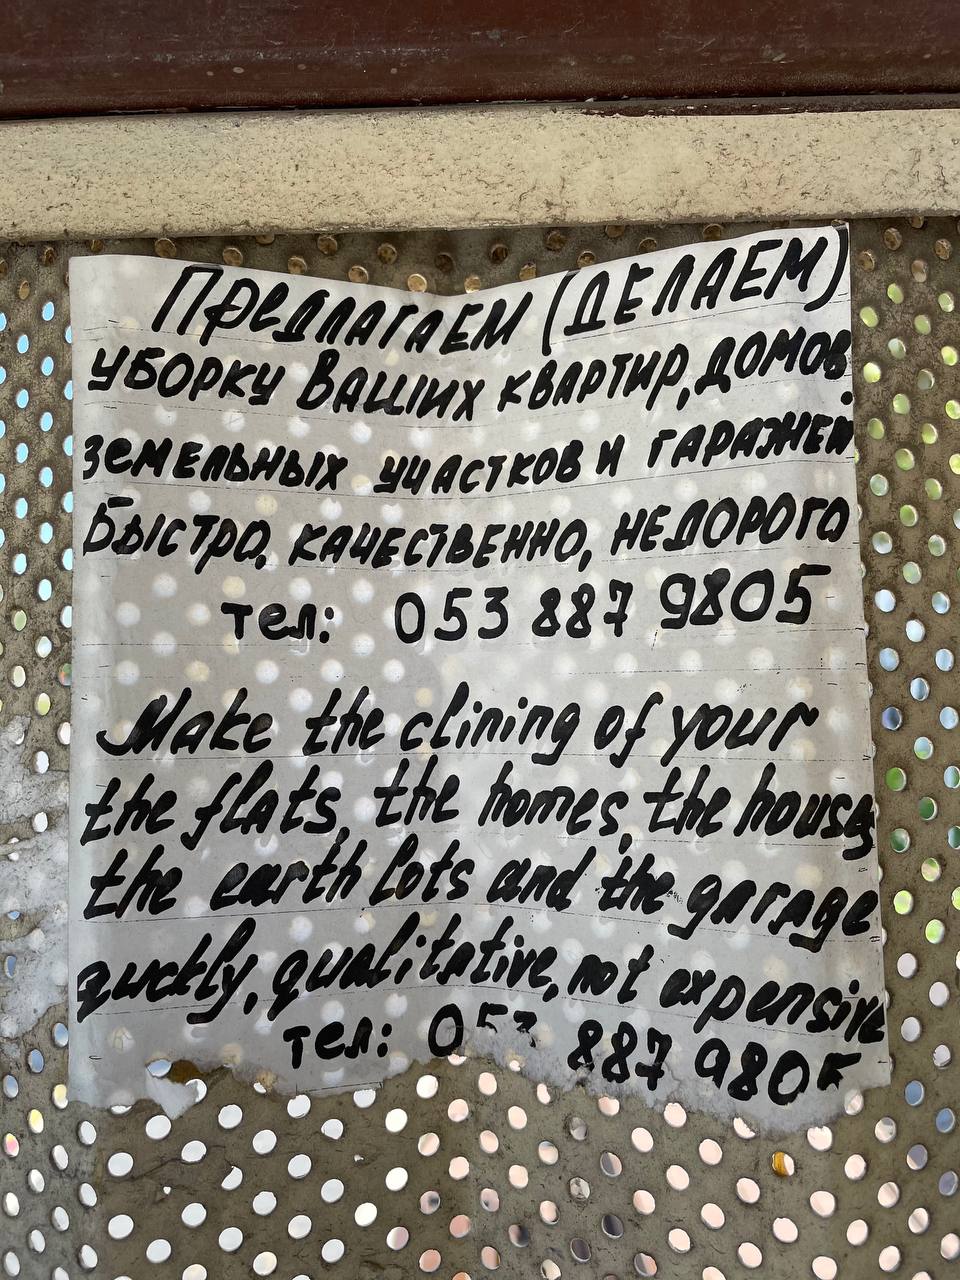 Предлагаем (ДЕЛАЕМ)
уборку Ваших квартир, домов,
земельных участков и гаражей
Быстро, качественно, недорого
тел: 053 887 9805
Make the clining of your
the flats, the homes, the houses,
the earth lots and the garage
quckly, qualitative, not expensive
тел: 053 887 9805